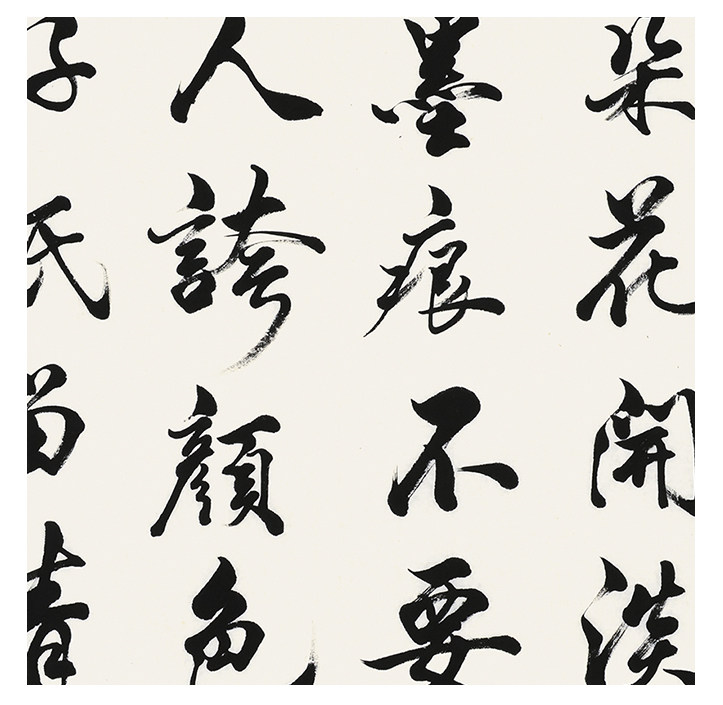 朵花開淡
墨痕不要
人誇顏色
子氏留清